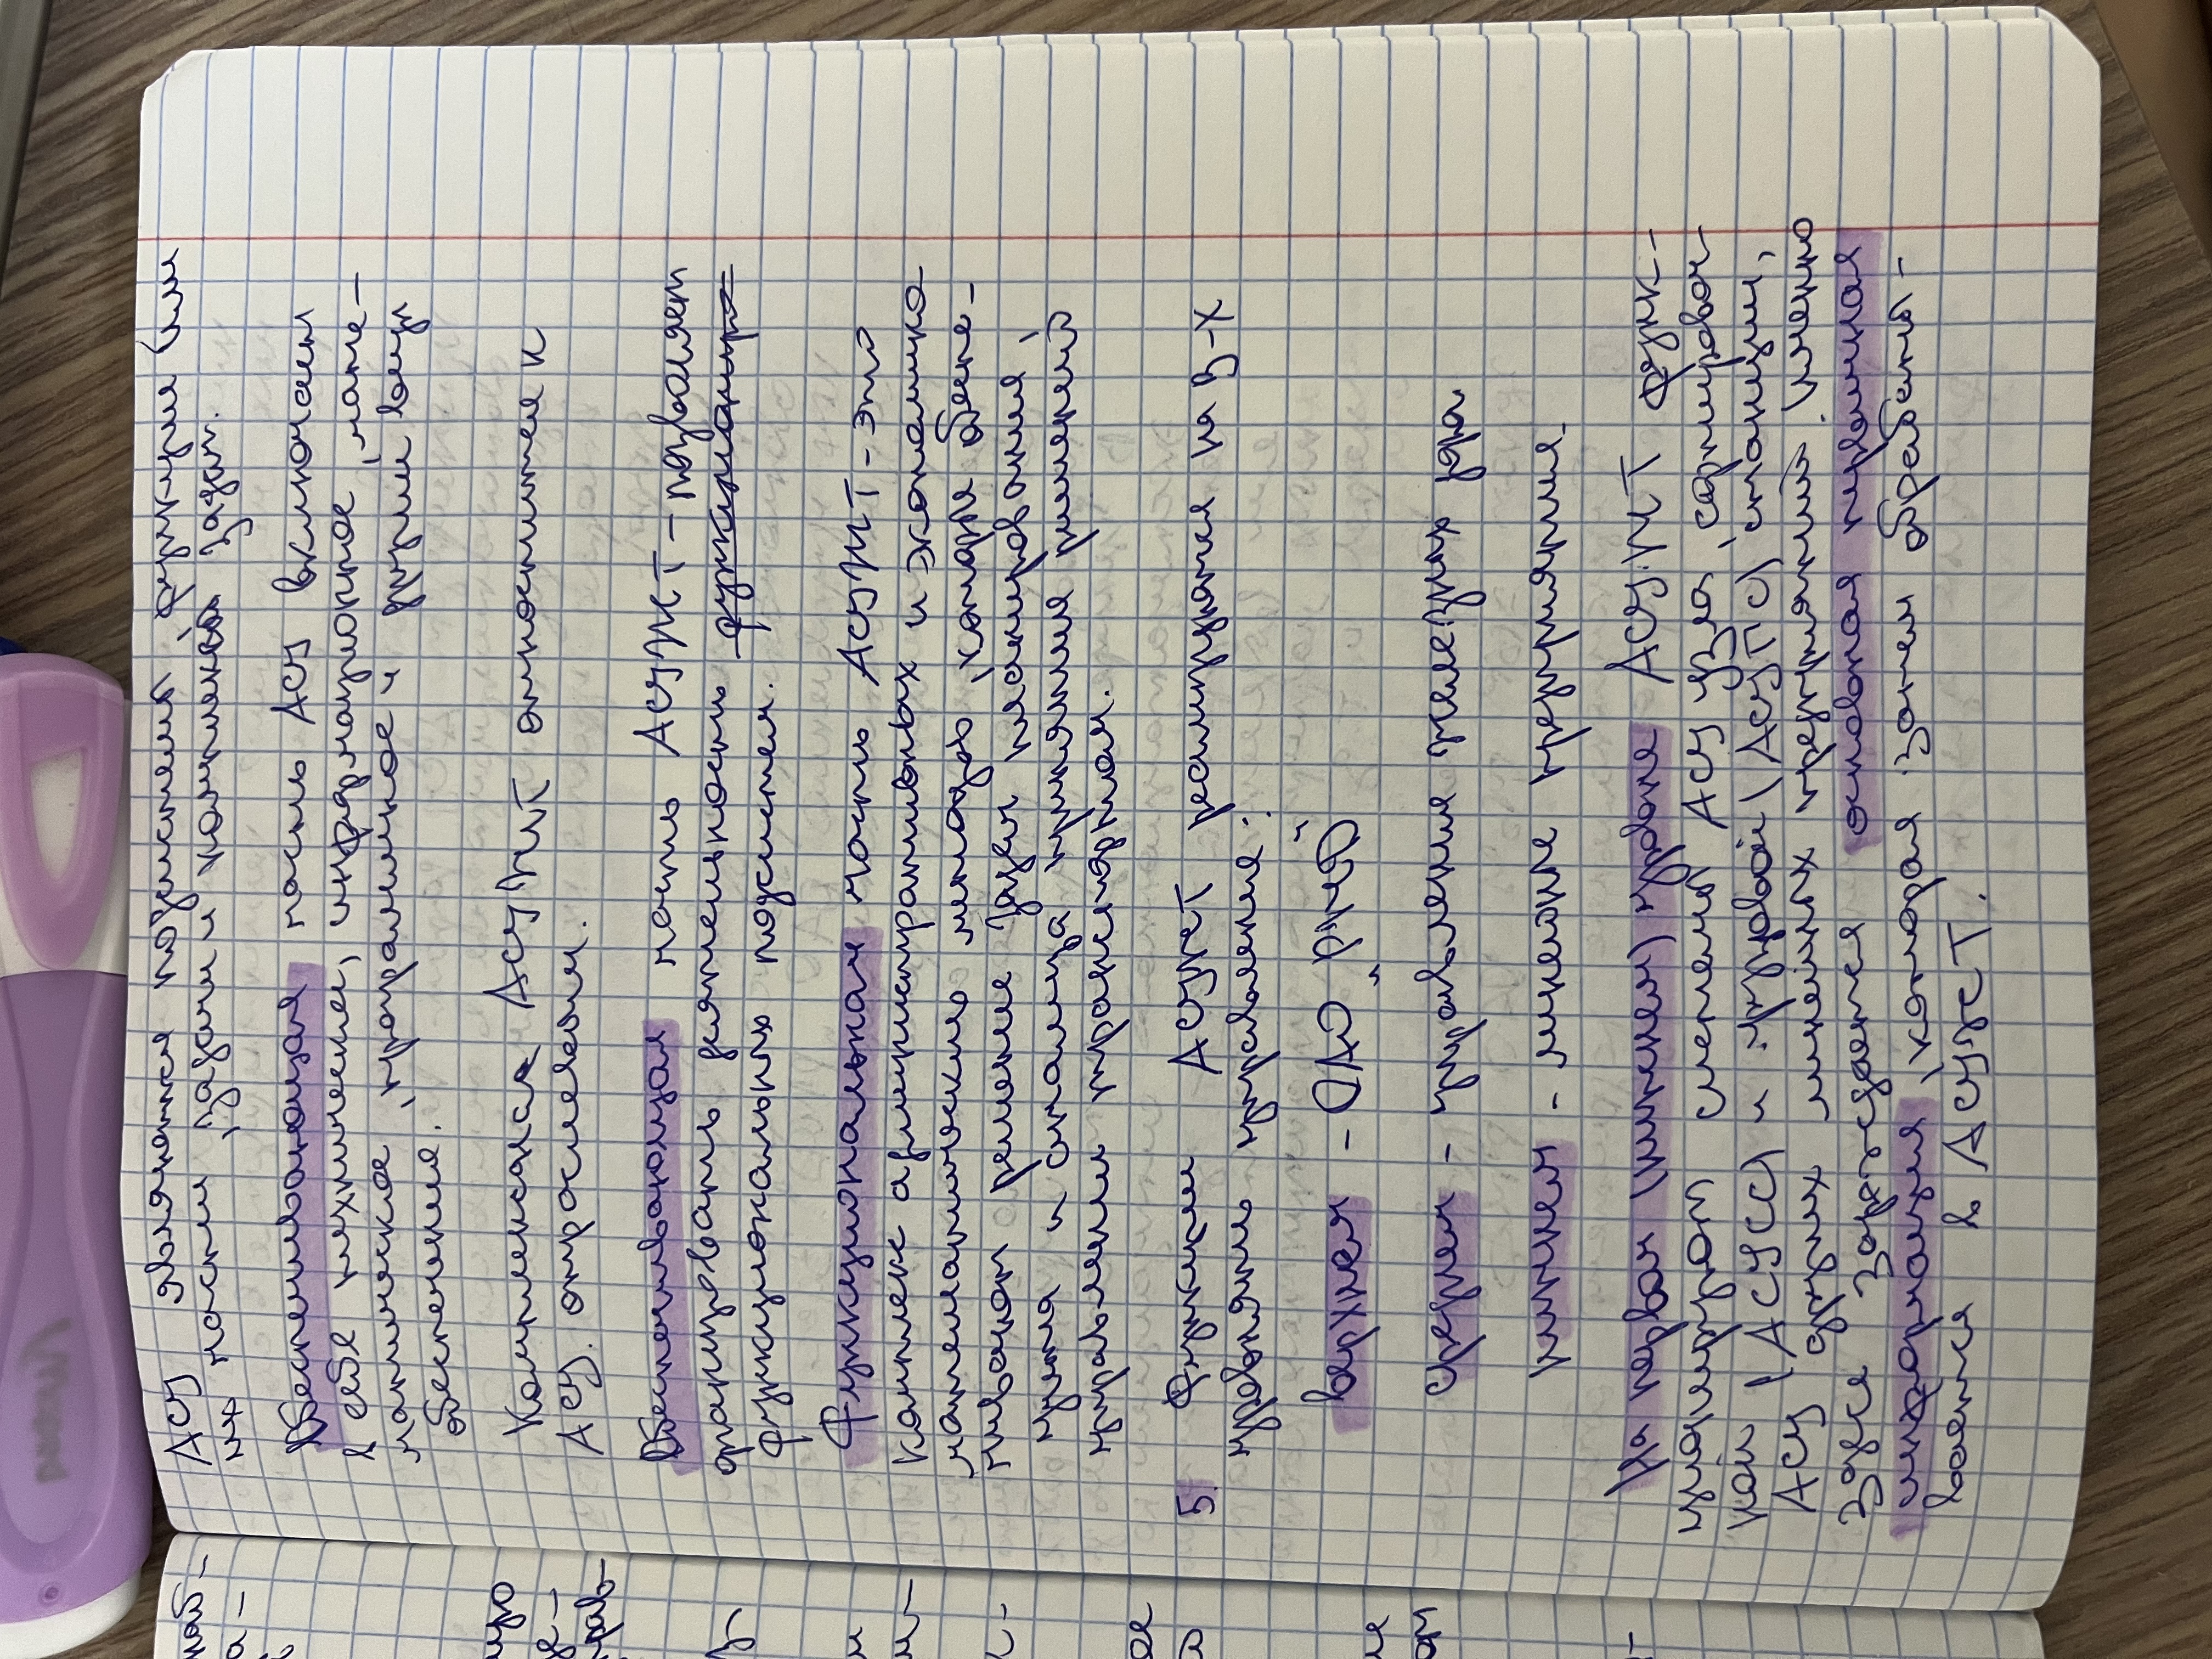 АСУ являются подсистемы, функции (или
их части), задачи и комплексы задач.
Обеспечивающая часть АСУ включает
в себя техническое, информационное, мате-
матическое, программное и другие виды
обеспечения.
Комплексная АСУЖТ относится к
АСУ отраслевым.
Обеспечивающая часть АСУЖТ - позволяет
организовать деятельность функционир
функциональных подсистем.
Функциональная часть АСУЖТ - это
комплекс административных и экономико-
математических методов, которые обеспе-
чивают решение задач планирования,
учета и анализа принятия решений
управления транспортном.
5. Функции АСУЖТ реализуются на 3-х
уровнях управления:
верхняя - ОАО "РЖД"
средняя - управления железных дорог
нижняя - линейные предприятия.
На первом (нижнем) уровне АСУЖТ функ-
ционируют системы АСУ узла, сортировоч-
ной (АСУСС) и грузовой (АСУГС) станции,
АСУ других линейных предприятий. Именно
здесь зарождается основная первичная
информация, которая затем обрабаты-
вается в АСУЖТ.